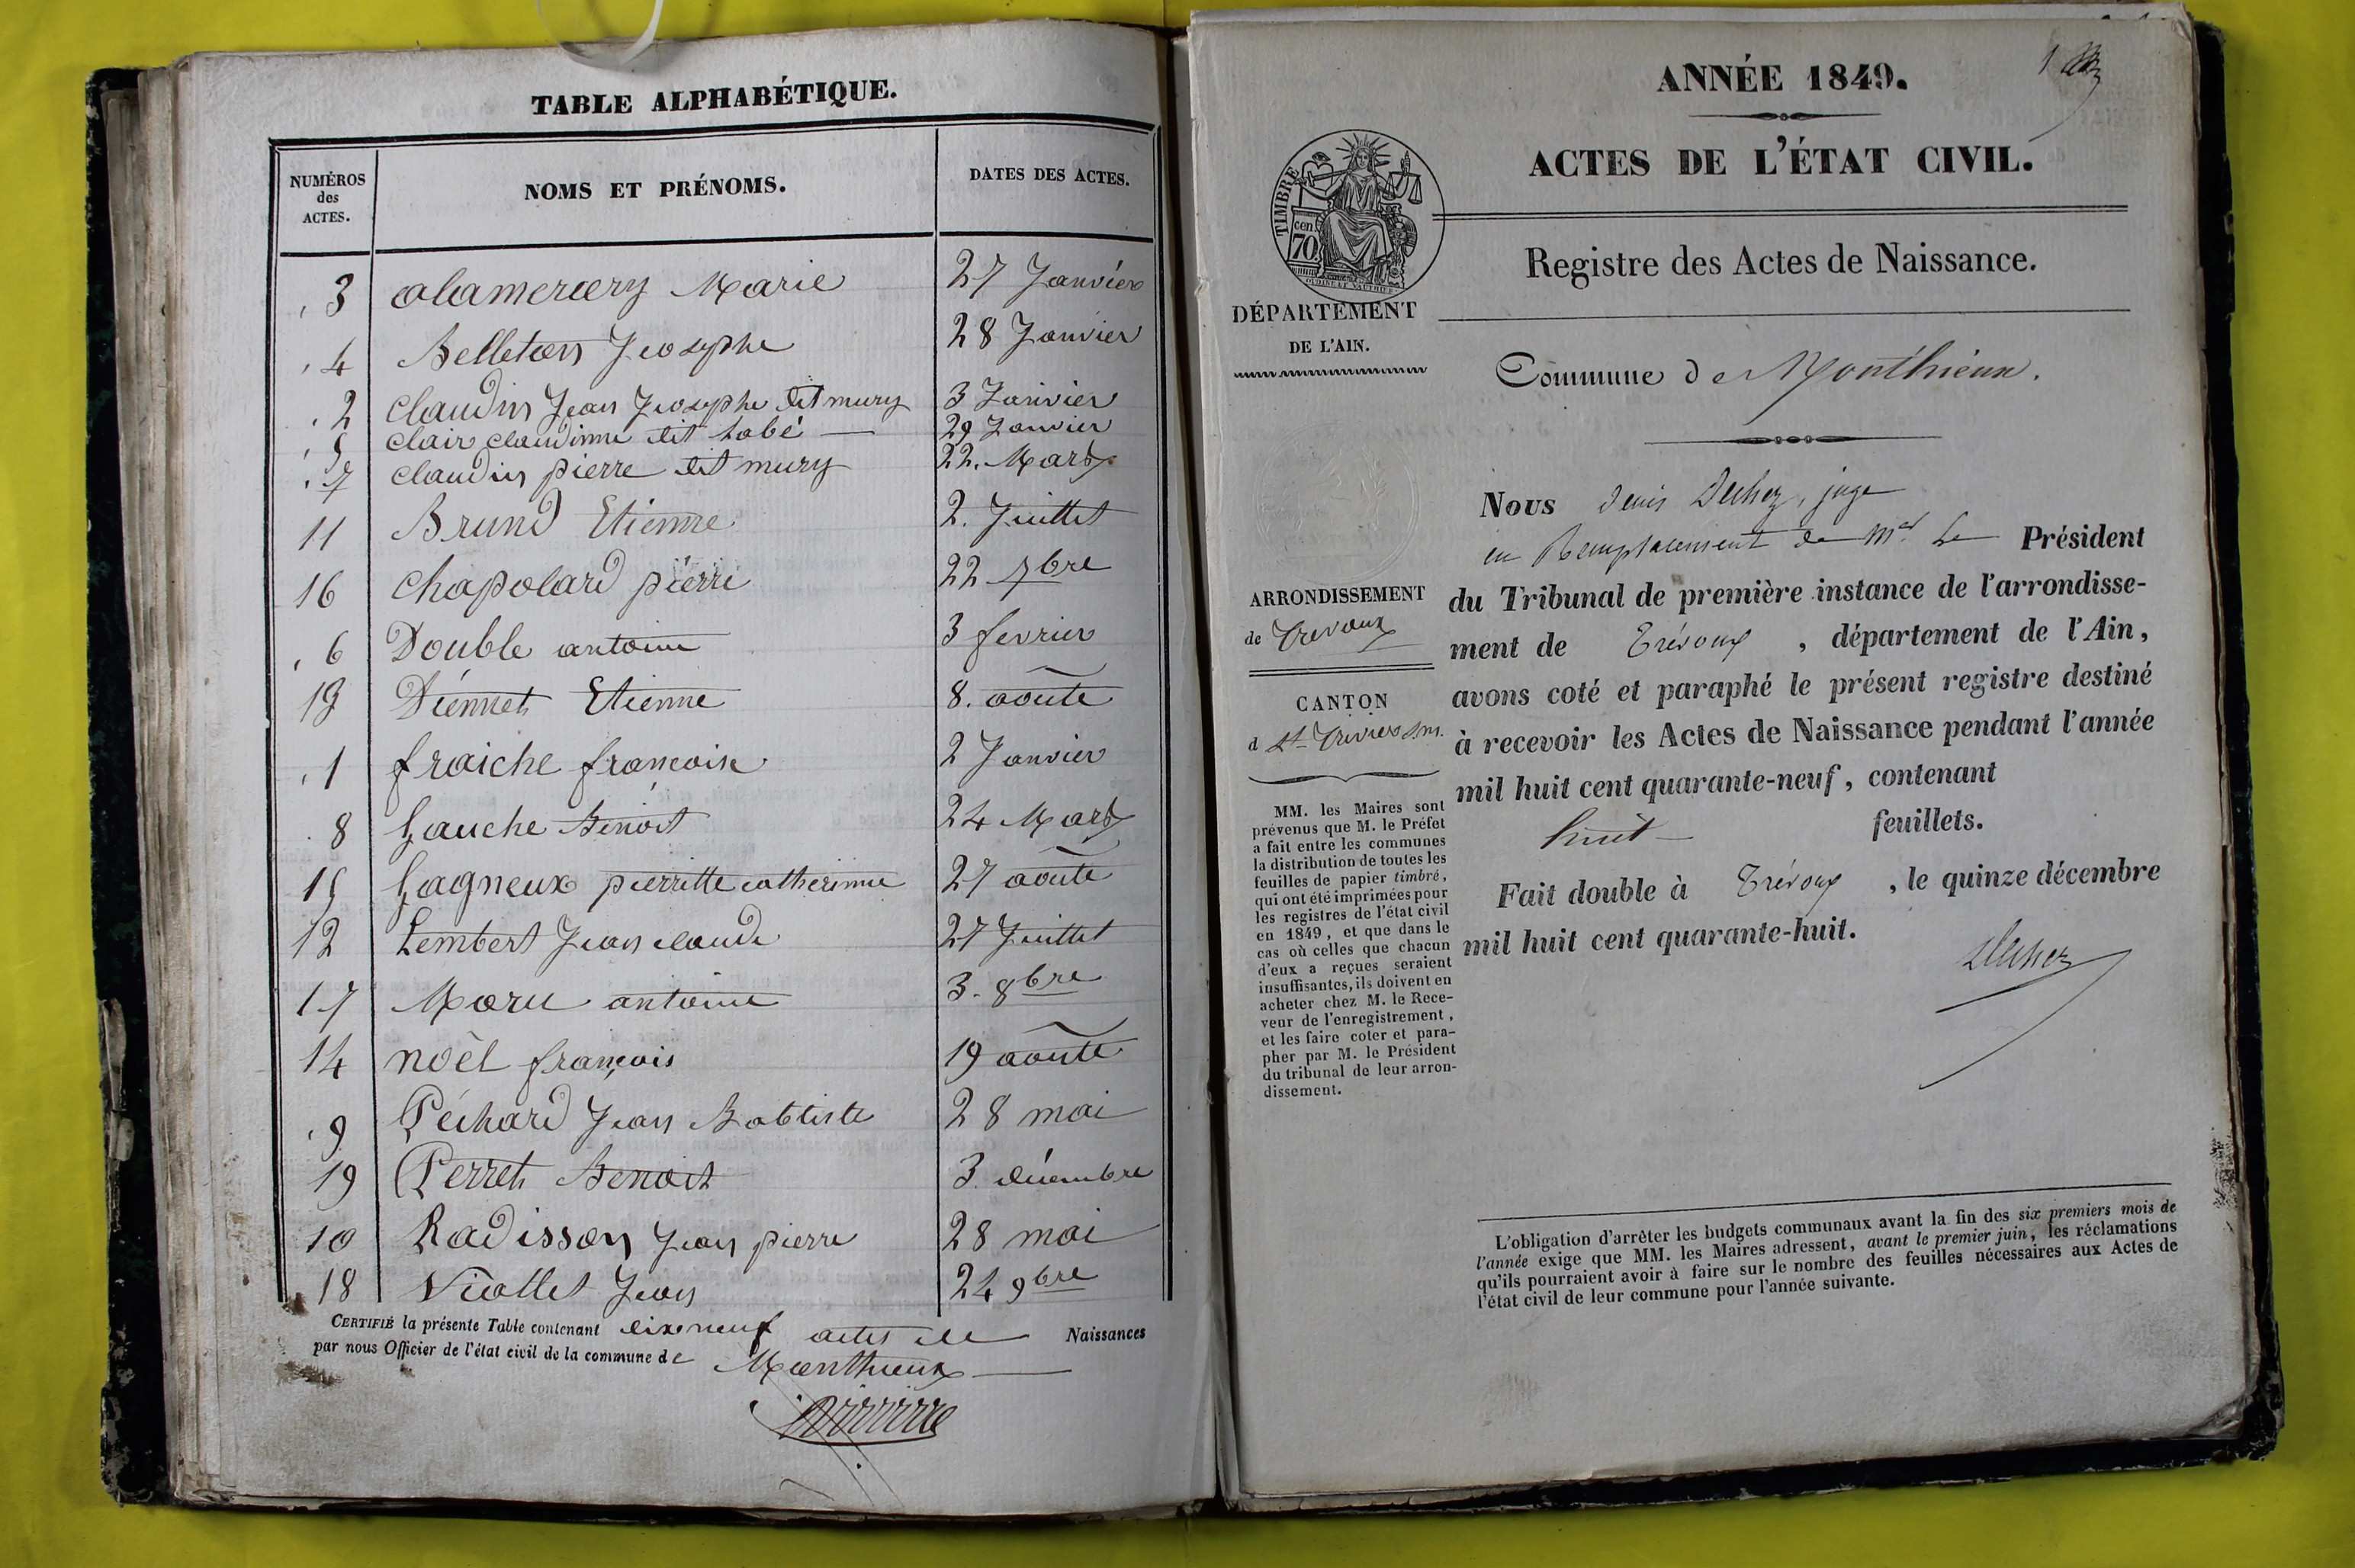 TABLE ALPHABÉTIQUE.
NUMÉROS des ACTES. NOMS ET PRÉNOMS. DATES DES ACTES.
3 alamercery Marie 27 Janvier
4 Belleton Jeosephe 28 Janvier
2 Claudin Jean Jeosephe dit mury 3 Janvier
5 Clair claudinne dit labé 29 Janvier
7 Claudin pierre dit mury 22. Mars
11 Brund Etienne 2. Juillet
16 Chapolard pierre 22 7bre
6 Double antoine 3 fevrier
13 Diennet Etienne 8. aoute
1 fraiche francoise 2 Janvier
8 Gauche Benoit 24 Mars
15 Gagneux pierrette catherinne 27 aoute
12 Lembert Jean claude 27 Juillet
17 Moru antoine 3. 8bre
14 noël françois 19 aoute
9 Péchard Jean Babtiste 28 mai
19 Perret Benoit 3. décembre
10 Radisson Jean pierre 28 mai
18 Viollet Jean 24 9bre
CERTIFIÉ la présente Table contenant dix neuf actes de Naissances
par nous Officier de l'état civil de la commune de Monthieux
1
ANNÉE 1849.
ACTES DE L'ÉTAT CIVIL.
TIMBRE
70 cen
Registre des Actes de Naissance.
DÉPARTEMENT
DE L'AIN.
Commune de Monthieux.
Nous denis Dechez, juge
en Remplacement de Mr. le Président
du Tribunal de première instance de l'arrondisse-
ment de Trévoux, département de l'Ain,
avons coté et paraphé le présent registre destiné
à recevoir les Actes de Naissance pendant l'année
mil huit cent quarante-neuf, contenant
huit feuillets.
Fait double à Trévoux, le quinze décembre
mil huit cent quarante-huit.
Dechez
ARRONDISSEMENT
de Trevoux
CANTON
d St Trivier s/m.
MM. les Maires sont
prévenus que M. le Préfet
a fait entre les communes
la distribution de toutes les
feuilles de papier timbré,
qui ont été imprimées pour
les registres de l'état civil
en 1849, et que dans le
cas où celles que chacun
d'eux a reçues seraient
insuffisantes, ils doivent en
acheter chez M. le Rece-
veur de l'enregistrement,
et les faire coter et para-
pher par M. le Président
du tribunal de leur arron-
dissement.
L'obligation d'arrêter les budgets communaux avant la fin des six premiers mois de
l'année exige que MM. les Maires adressent, avant le premier juin, les réclamations
qu'ils pourraient avoir à faire sur le nombre des feuilles nécessaires aux Actes de
l'état civil de leur commune pour l'année suivante.